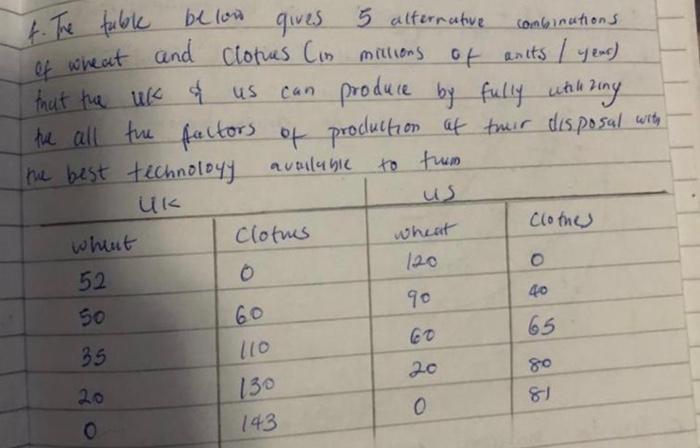 4. The table below gives 5 alternative combinations
of wheat and Clothes (in millions of units / year)
that the UK & US can produce by fully utilizing
the all the factors of production at their disposal with
the best technology available to them
UK US
wheat Clothes wheat Clothes
52 0 120 0
50 60 90 40
35 110 60 65
20 130 20 80
0 143 0 81